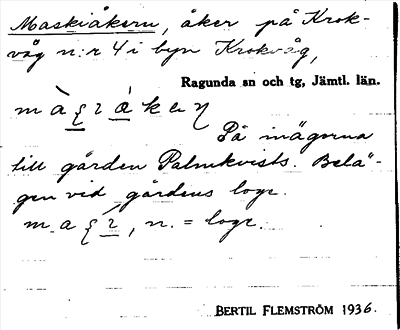 Maskiåkern, åker på Krok-
våg n:r 4 i byn Krokvåg,
Ragunda sn och tg, Jämtl. län.
På inägorna
till gården Palmkvists. Belä-
gen vid gårdens loge.
n. = loge.
BERTIL FLEMSTRÖM 1936.